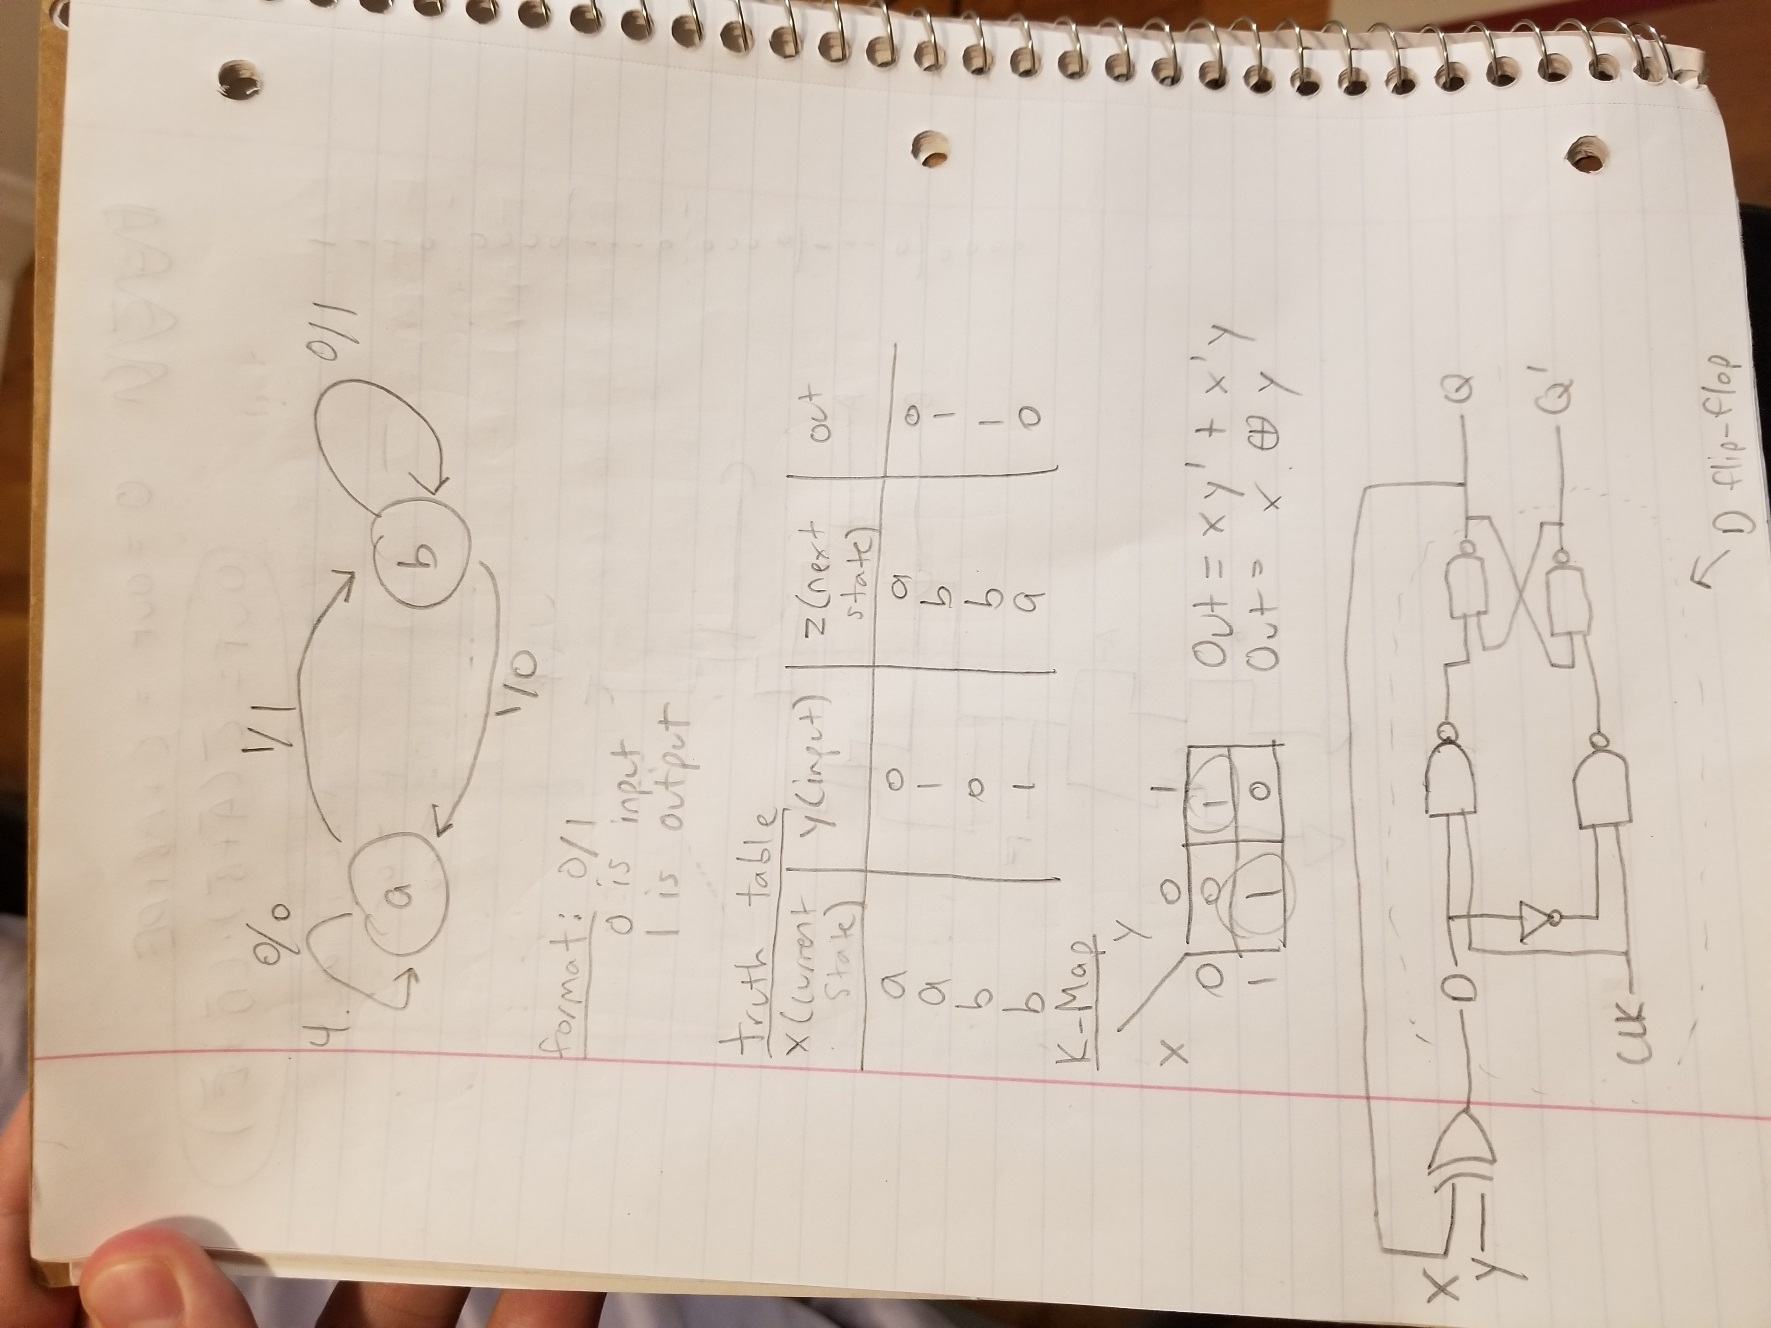 4.
0/0
1/1
0/1
a
b
1/0
format: 0/1
0 is input
1 is output
truth table
x (current state) y (input) z (next state) out
a 0 a 0
a 1 b 1
b 0 b 1
b 1 a 0
K-Map
X Y 0 1
0 0 1
1 1 0
Out = xy' + x'y
Out = x ⊕ y
X
Y
D
Q
Q'
CLK
D flip-flop